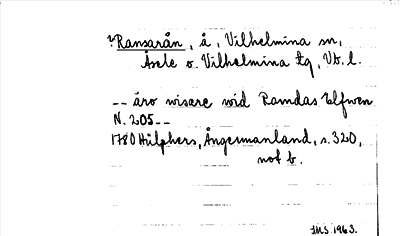 ? Ransarån, å, Vilhelmina sn,
Åsele o. Vilhelmina tg, Vb. l.
-- äro visare vid Ramdas Elfwen
N. 205 --
1780 Hülphers, Ångermanland, s. 320,
not b.
JMS 1963.